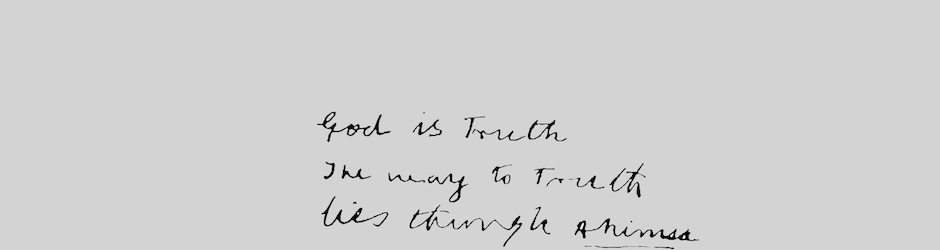 God is Truth
The way to Truth
lies through ahimsa